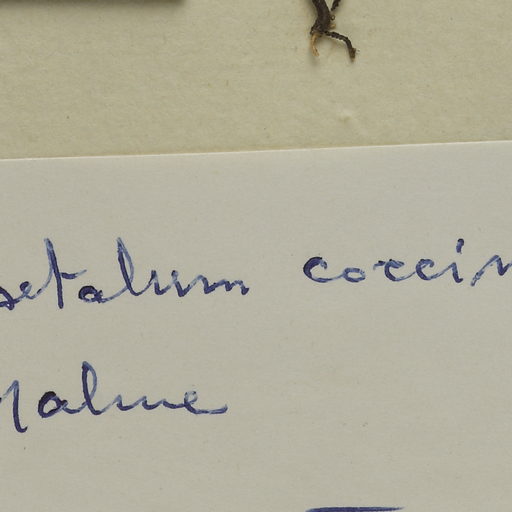 setalum coccin
Malme